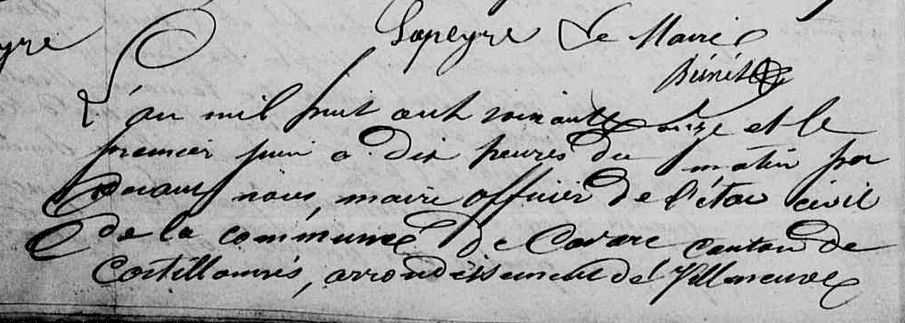 yre Lapeyre Le Maire
Bénét
L'an mil huit cent soixante onze et le
premier juin a dix heures du matin par
devant nous, maire officier de l'état civil
de la commune de Cavarc canton de
Castillonnès, arrondissement de Villeneuve